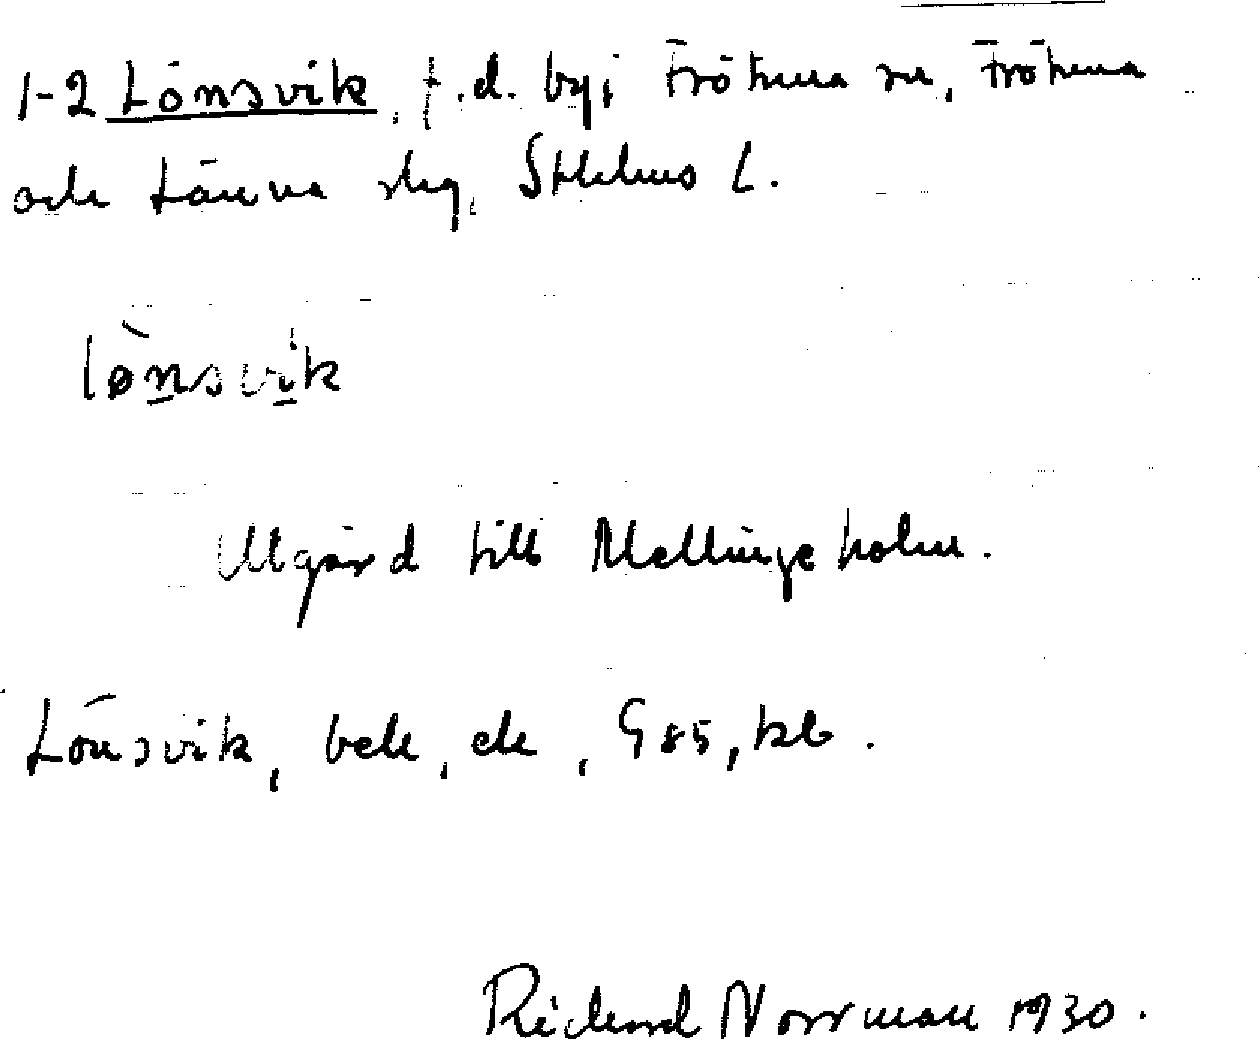 1-2 Lönsvik, f.d. by i Frötuna sn, Frötuna
och Länna slg, Sthlms L.
lø̀nsvik
Utgård till Mellingeholm.
Lönsvik, bek, ek, G85, kb.
Richard Norrman 1930.